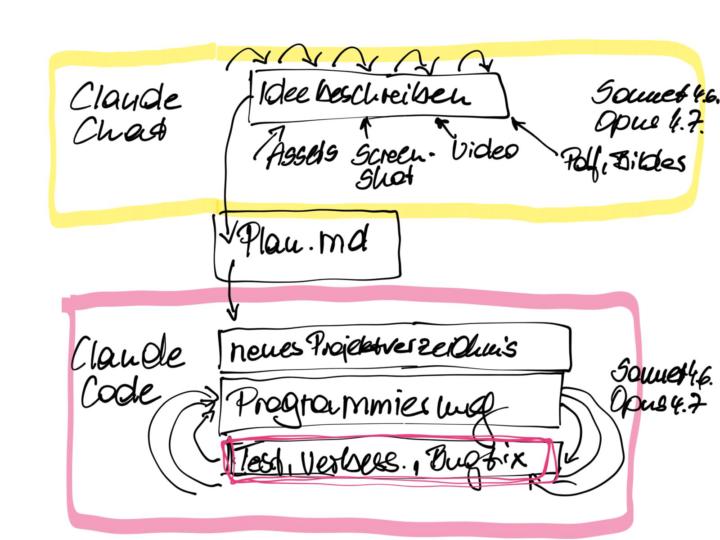 Claude
Chat
Idee beschreiben
Sonnet 4.6.
Opus 4.7.
Assets
Screen-
shot
Video
Pdf, Bilder
Plan.md
Claude
Code
neues Projektverzeichnis
Programmierung
Test, Verbess., Bugfix
Sonnet 4.6.
Opus 4.7